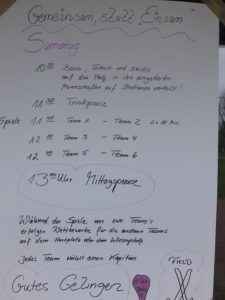 Gemeinsam, statt "Einsam"
Samstag
10 00 Basic, Technik und
auf dem Platz in den eingeteilten
Mannschaften auf Stationen verteilt!
11 00 Trinkpause
Spiele 11 Team 1 - Team 2
12 Team 3 - Team 4
12 Team 5 - Team 6
13 00 Uhr Mittagspause
Während der Spiele von zwei Team's
erfolgen Wettbewerbe für die anderen Teams
auf dem Hartplatz oder dem
Jedes Team wählt einen Kapitän
Gutes Gelingen
FIELD